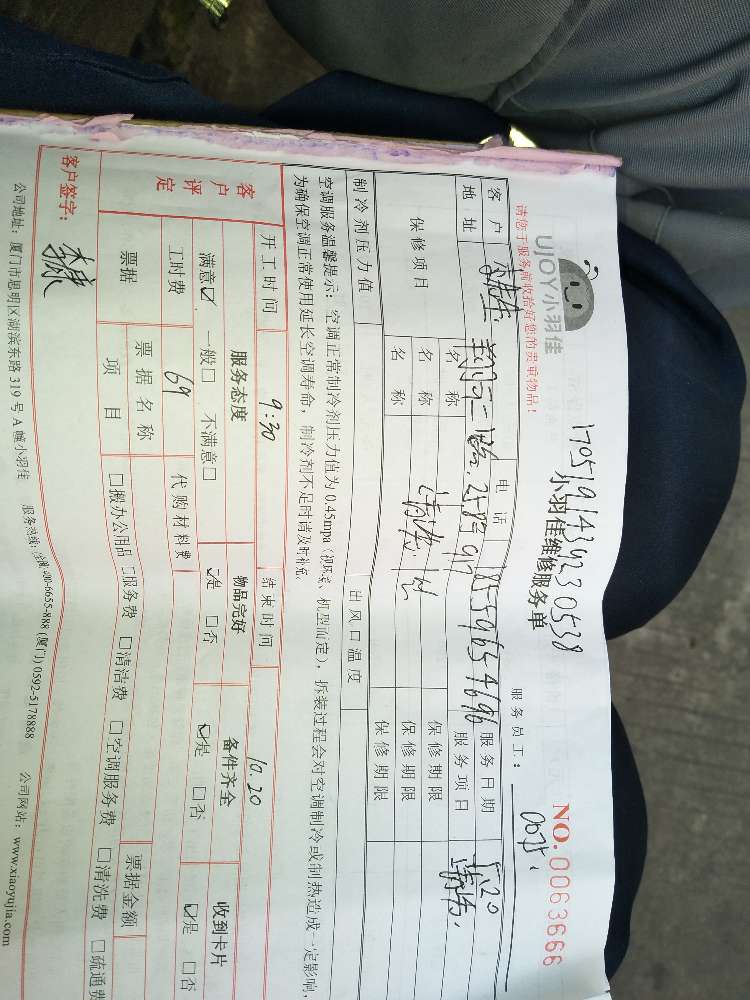 1705191434230538
UJOY小羽佳
小羽佳维修服务单
NO.0063666
请您于服务前收拾好您的贵重物品！
服务员工：
客户 电话 18559654696 服务日期 5.20
地址 服务项目 清洗
保修项目 名称 清洗 保修期限
名称 保修期限
名称 保修期限
制冷剂压力值 出风口温度
空调服务温馨提示：空调正常制冷剂压力值为0.45mpa（视环境、机型而定），拆装过程会对空调制冷或制热造成一定影响，
为确保空调正常使用延长空调寿命，制冷剂不足时请及时补充。
开工时间 9:30 结束时间 10.20
客户评定 服务态度 物品完好 备件齐全 收到卡片
满意☑ 一般□ 不满意□ ☑是 □否 ☑是 □否 ☑是 □否
工时费 69 代购材料费
票据 票据名称 票据金额
项目 □搬办公用品 □服务费 □清洁费 □空调服务费 □清洗费 □疏通费
客户签字：
公司地址：厦门市思明区湖滨东路319号A幢小羽佳 服务热线：全国400-6655-888 (厦门) 0592-5178888 公司网站：www.xiaoyujia.com